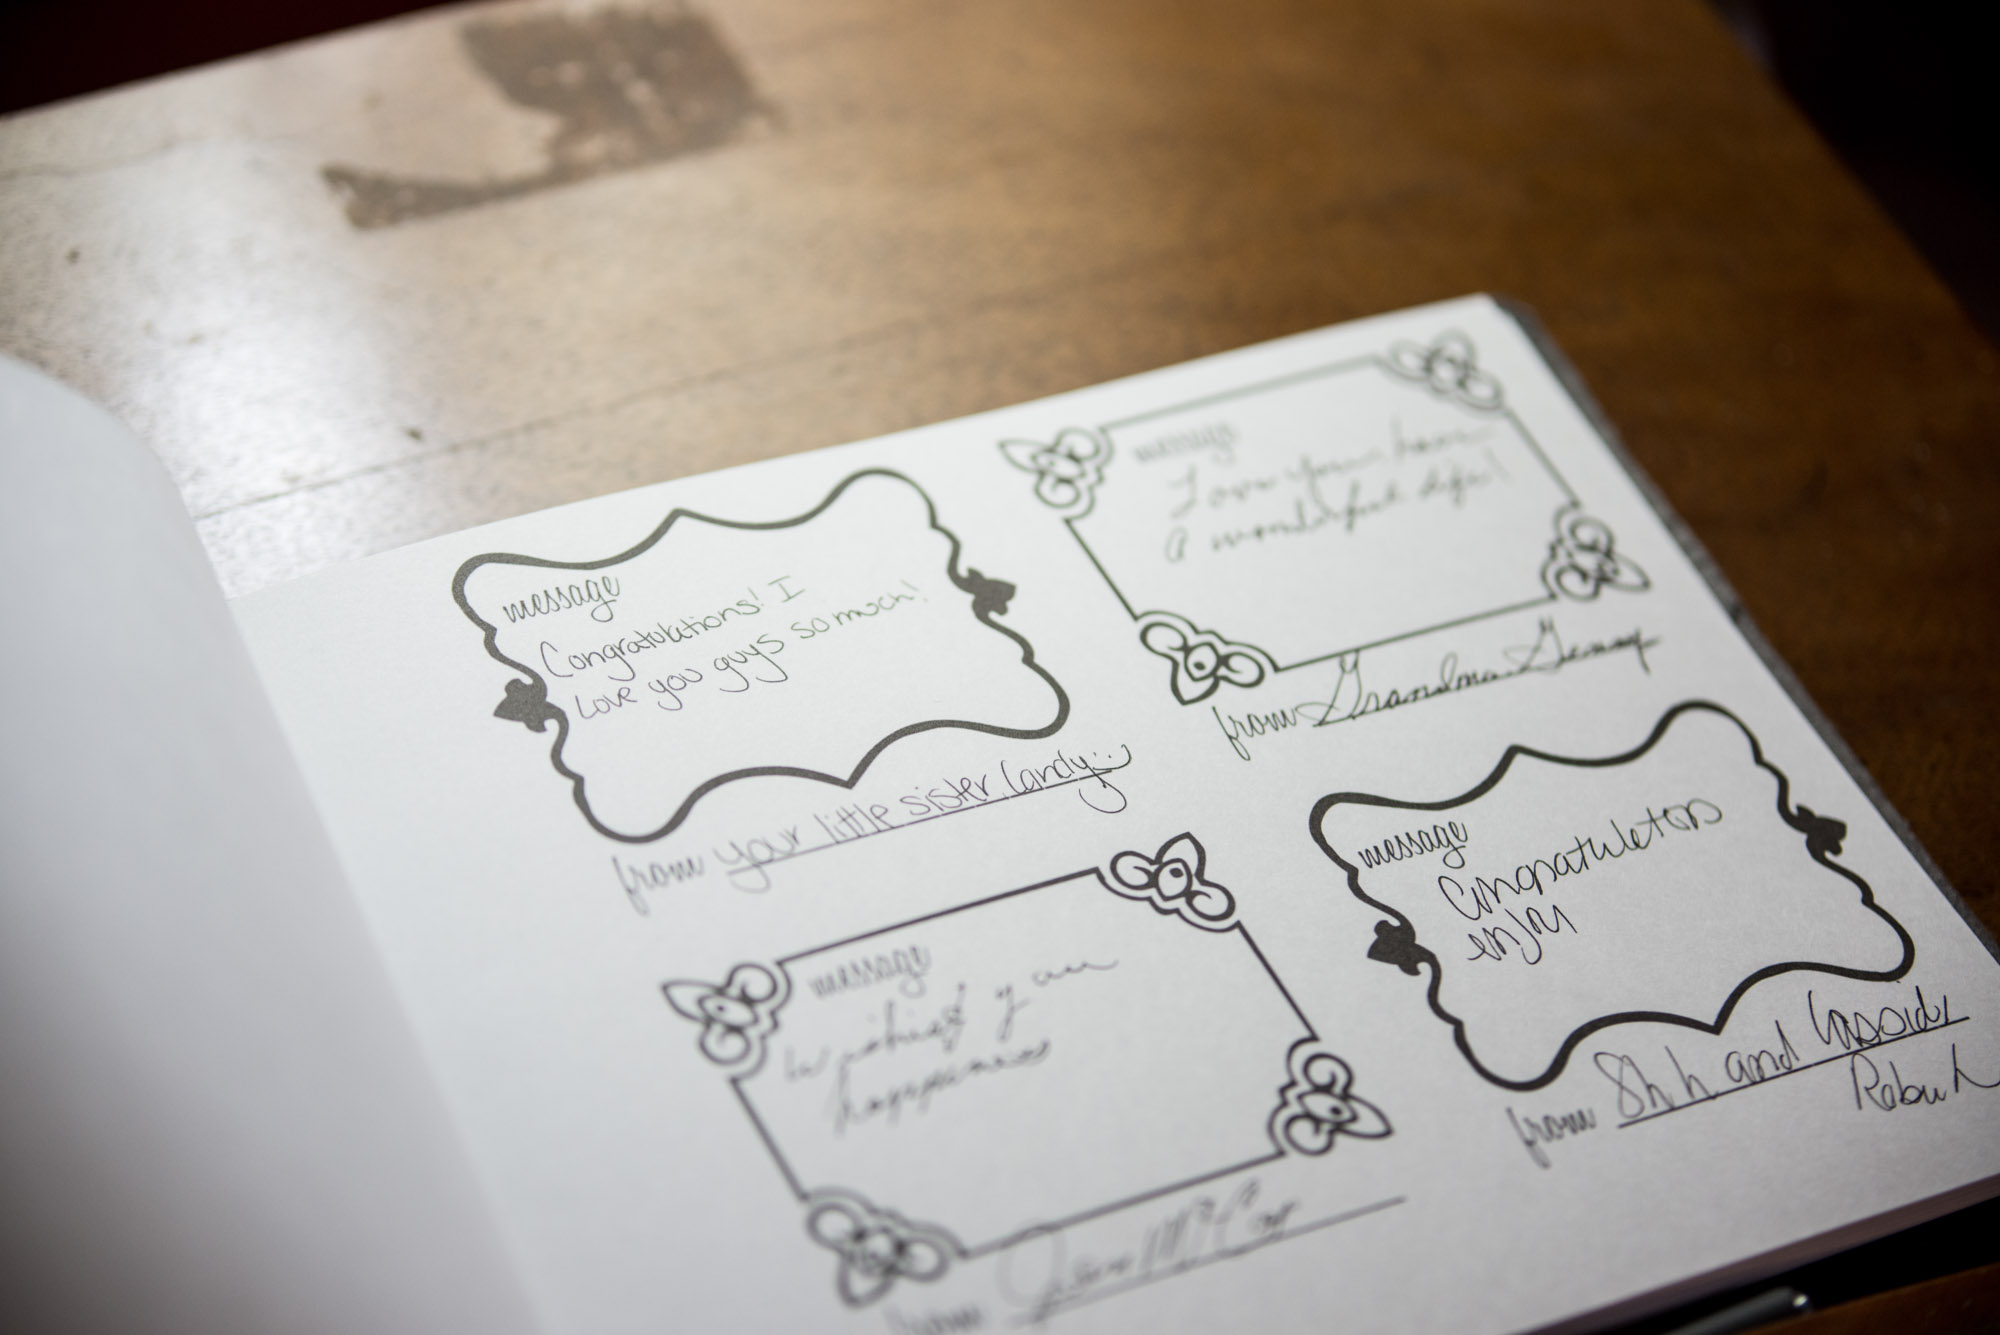 message
Congratulations! I
Love you guys so much!
from your little sister Candy
message
Love you - have
a wonderful life!
from Grandma Genny
message
Wishing you
happiness
from
message
Congratulations
enjoy
from and Cassidy